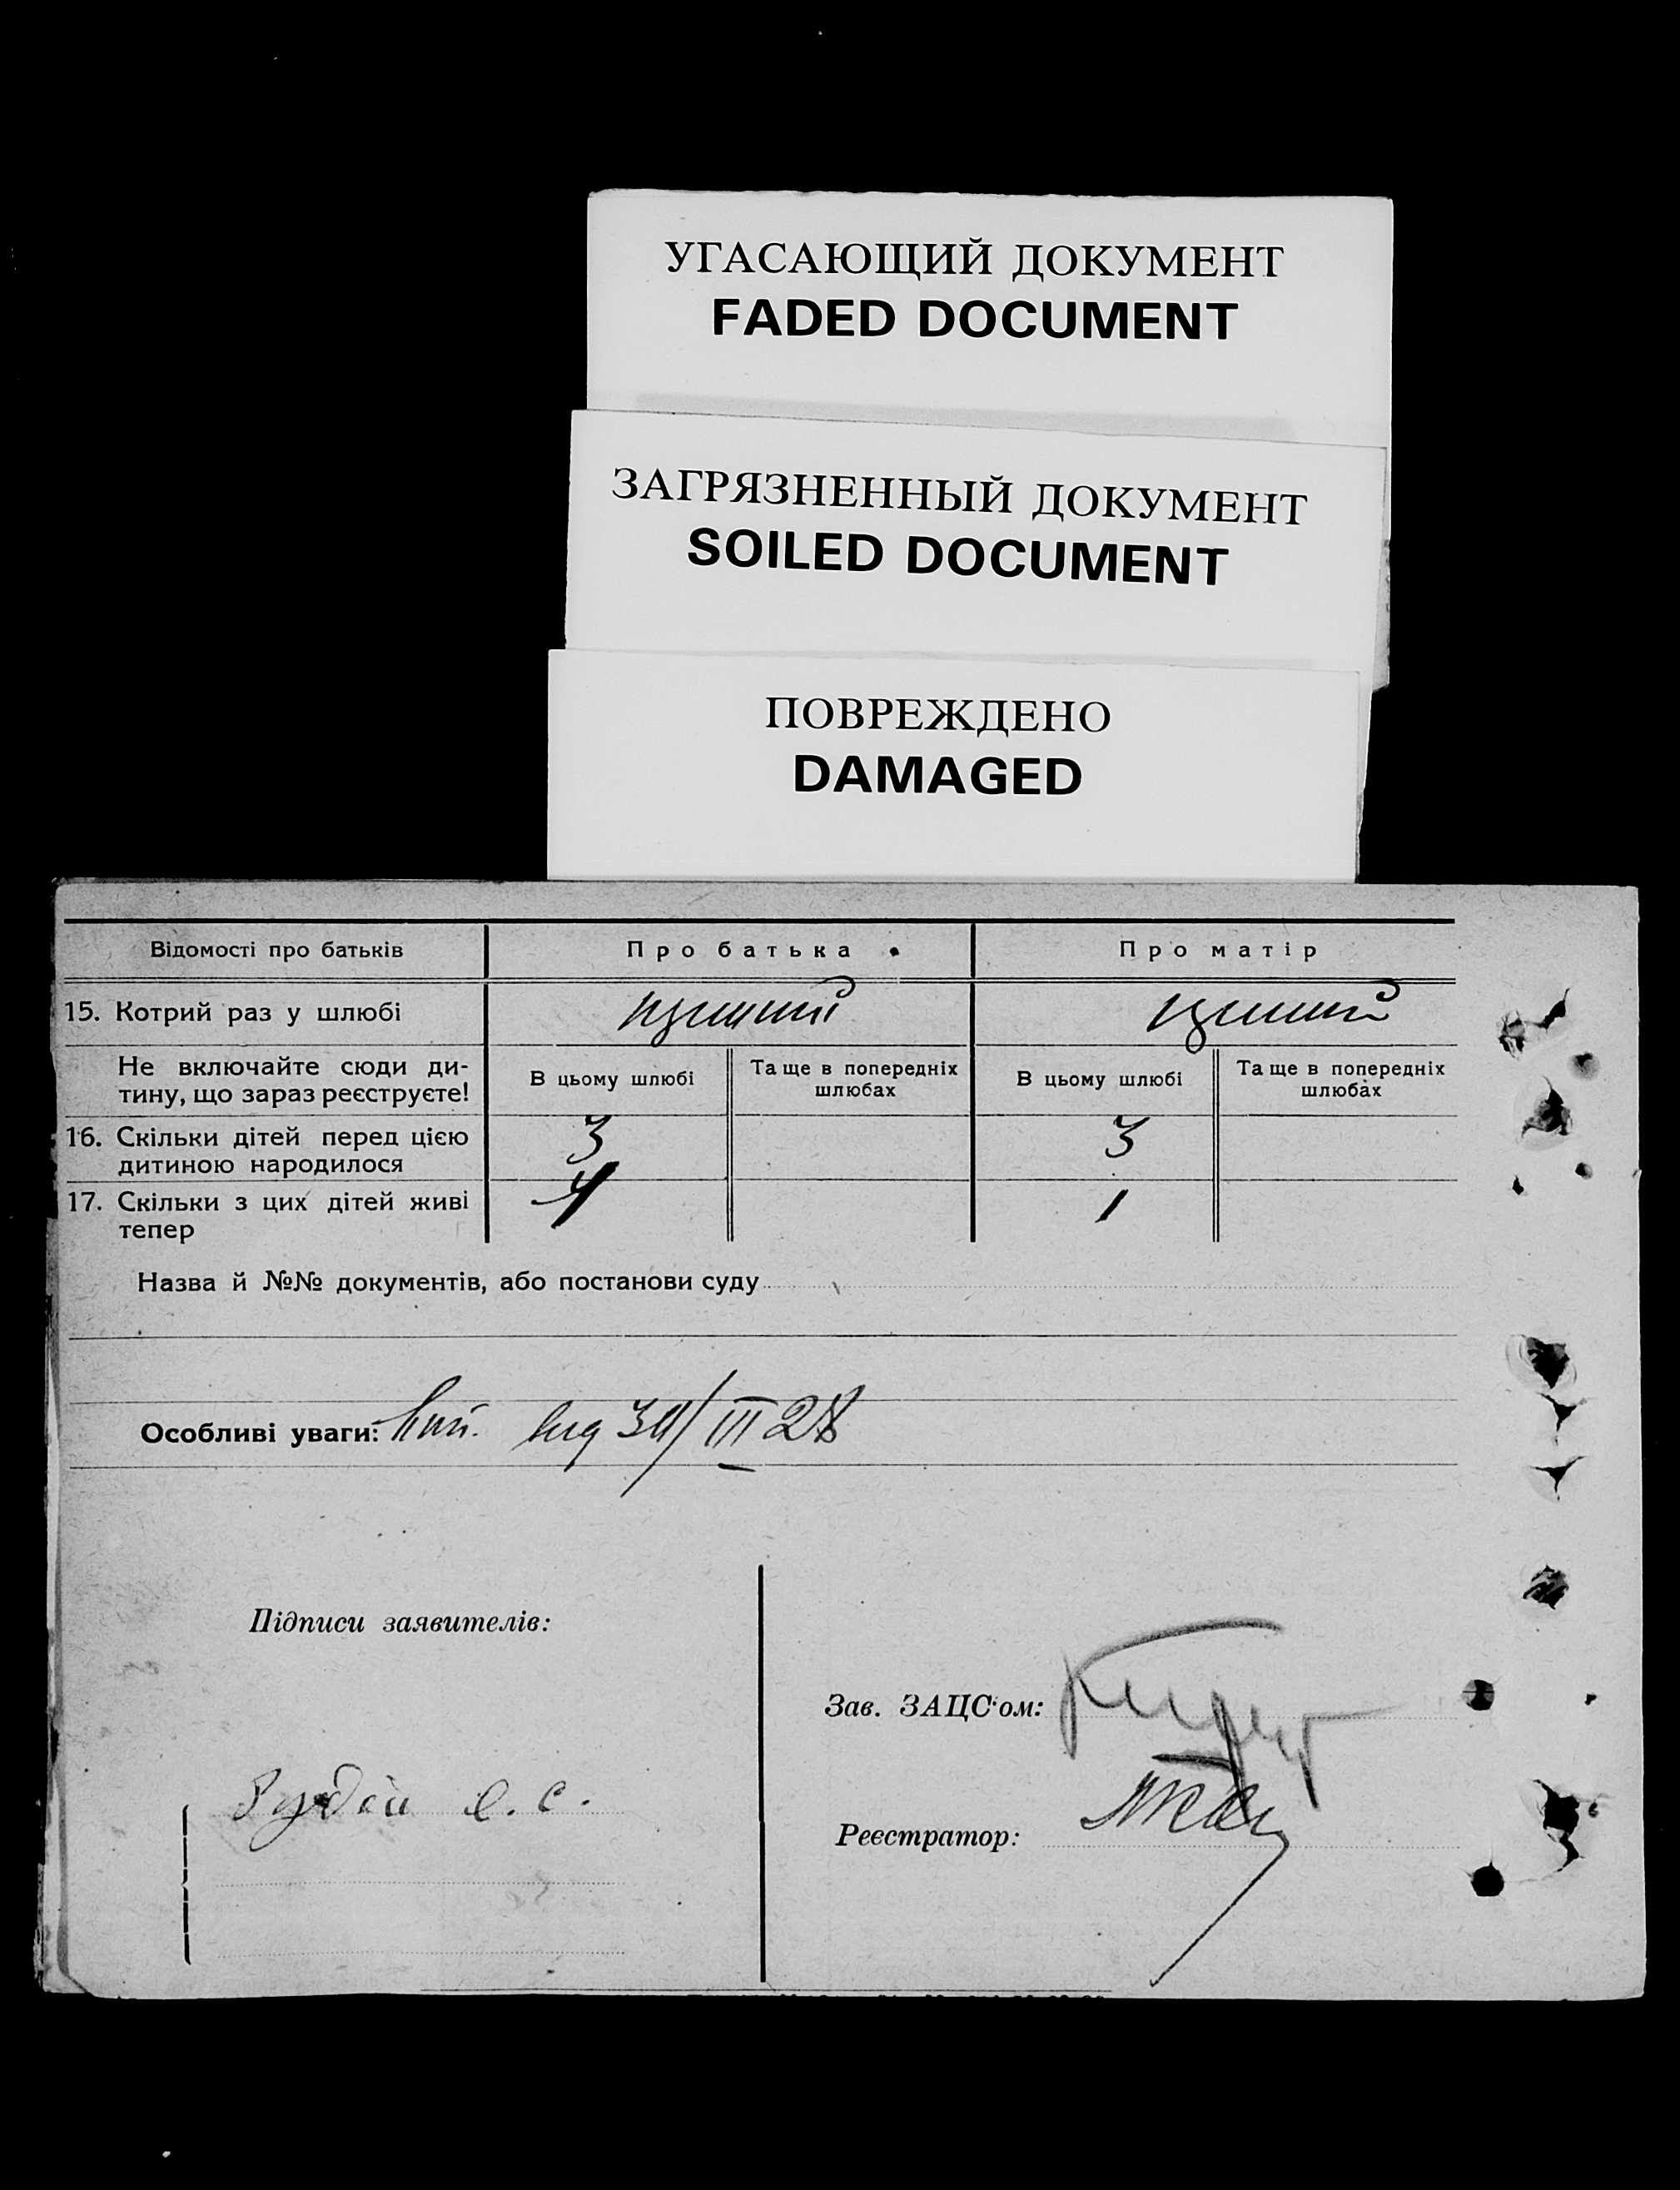 УГАСАЮЩИЙ ДОКУМЕНТ
FADED DOCUMENT
ЗАГРЯЗНЕННЫЙ ДОКУМЕНТ
SOILED DOCUMENT
ПОВРЕЖДЕНО
DAMAGED
Відомості про батьків Про батька Про матір
15. Котрий раз у шлюбі
Не включайте сюди ди-
тину, що зараз реєструєте!
В цьому шлюбі Та ще в попередніх шлюбах В цьому шлюбі Та ще в попередніх шлюбах
16. Скільки дітей перед цією
дитиною народилося 3 3
17. Скільки з цих дітей живі
тепер 1
Назва й №№ документів, або постанови суду
Особливі уваги: III 28
Підписи заявителів:
Зав. ЗАЦС'ом:
Реєстратор: